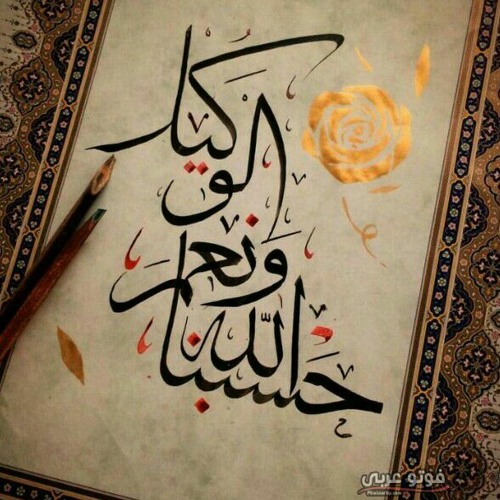 حسبنا الله
ونعم
الوكيل
فوتو عربي